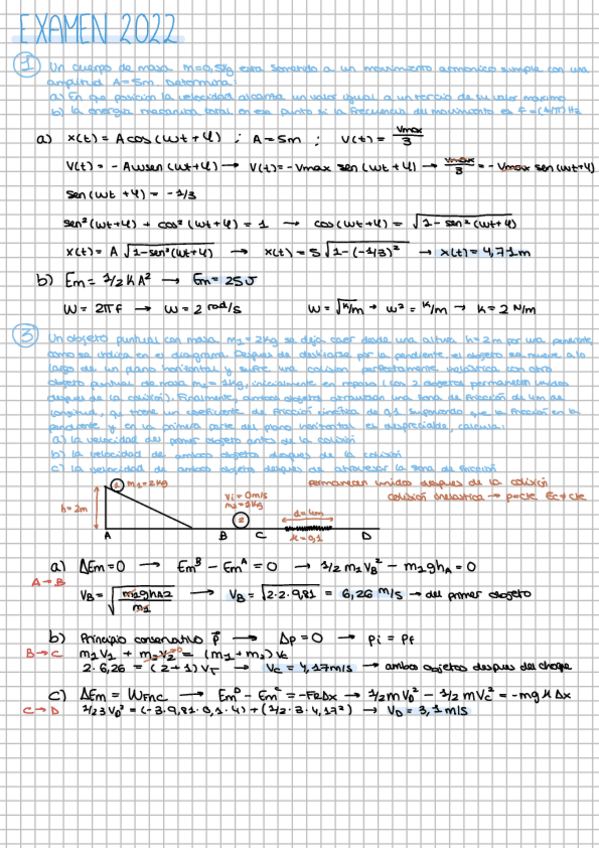 EXAMEN 2022
① Un cuerpo de masa M=0,5kg esta sometido a un movimiento armonico simple con una
amplitud A=5m. Determina:
a) En que posicion la velocidad alcanza un valor igual a un tercio de su valor maximo
b) la energia mecanica total en ese punto si la frecuencia del movimiento es F=(1/π)Hz
a) x(t) = A cos(ωt+φ) ; A=5m ; v(t) = Vmax/3
v(t) = -Aωsen(ωt+φ) → v(t)=-Vmax sen(ωt+φ) → Vmax/3 = -Vmax sen(ωt+φ)
sen(ωt+φ) = -1/3
sen²(ωt+φ) + cos²(ωt+φ) = 1 → cos(ωt+φ) = √1-sen²(ωt+φ)
x(t) = A √1-sen²(ωt+φ) → x(t) = 5 √1-(-1/3)² → x(t) = 4,71m
b) Em = 1/2 KA² → Em = 25J
ω = 2πf → ω = 2 rad/s ω = √K/m → ω² = K/m → K = 2 N/m
③ Un objeto puntual con masa m₁=2kg se deja caer desde una altura h=2m por una pendiente
como se indica en el diagrama. Despues de deslizarse por la pendiente, el objeto se mueve a lo
largo de un plano horizontal y sufre una colision perfectamente inelastica con otro
objeto puntual de masa m₂=1kg, inicialmente en reposo (los 2 objetos permanecen unidos
despues de la colisión). Finalmente, ambos objetos atraviesan una zona de fricción de 4m de
longitud, que tiene un coeficiente de fricción cinetica de 0,1. Suponiendo que la fricción en la
pendiente y en la primera parte del plano horizontal es despreciable, calcula:
a) la velocidad del primer objeto antes de la colisión
b) la velocidad de ambos objetos despues de la colisión
c) la velocidad de ambos objetos despues de atravesar la zona de fricción
① m₁=2kg
permanecen unidos despues de la colisión
colisión inelastica → p=cte Ec≠cte
h=2m
Vi=0m/s
m₂=1kg
②
d=4m
μ=0,1
A B C D
a) ΔEm=0 → Em^B - Em^A = 0 → 1/2 m₁V_B² - m₁gh_A = 0
A→B
V_B = √m₁gh_A2/m₁ → V_B = √2·2·9,81 = 6,26 m/s → del primer objeto
b) Principio conservativo p⃗ → Δp=0 → pi = pf
B→C m₁V₁ + m₂V₂ = (m₁+m₂)V_C
2·6,26 = (2+1)V_F → V_C = 4,17m/s → ambos objetos despues del choque
c) ΔEm = W_FNC → Em^D - Em^C = -FRΔx → 1/2mV_D² - 1/2mV_C² = -mgμΔx
C→D 1/2 3V_D² = (-3·9,81·0,1·4)+(1/2·3·4,17²) → V_D = 3,1m/s